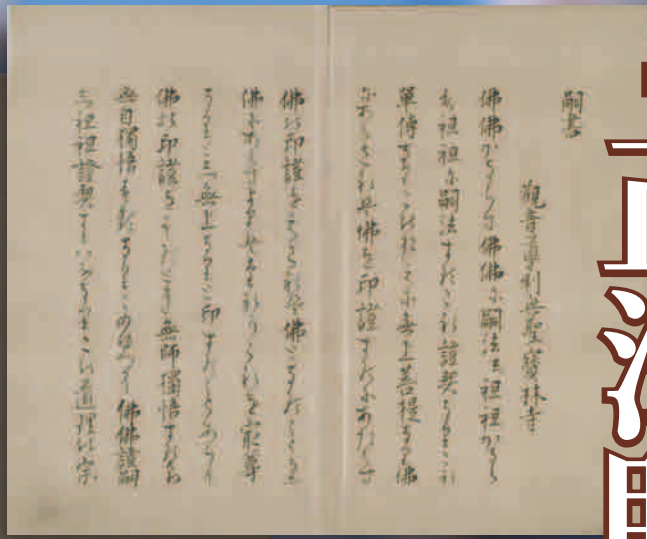 正法眼
嗣書
觀音導利興聖寶林寺
佛佛かならす佛佛に嗣法し祖祖かなら
す祖祖に嗣法するこれ證契なりこれ
單傳なりこのゆへに無上菩提なり佛
にあらされは佛を印證するにあたはす
佛の印證をえされは佛となることなし
佛にあらすよりはたれかこれを最尊
なりとし無上なりと印することあらん
佛の印證をうるとき無師獨悟するなり
無自獨悟するなりこのゆへに佛佛證嗣
し祖祖證契すといふなりこの道理の宗